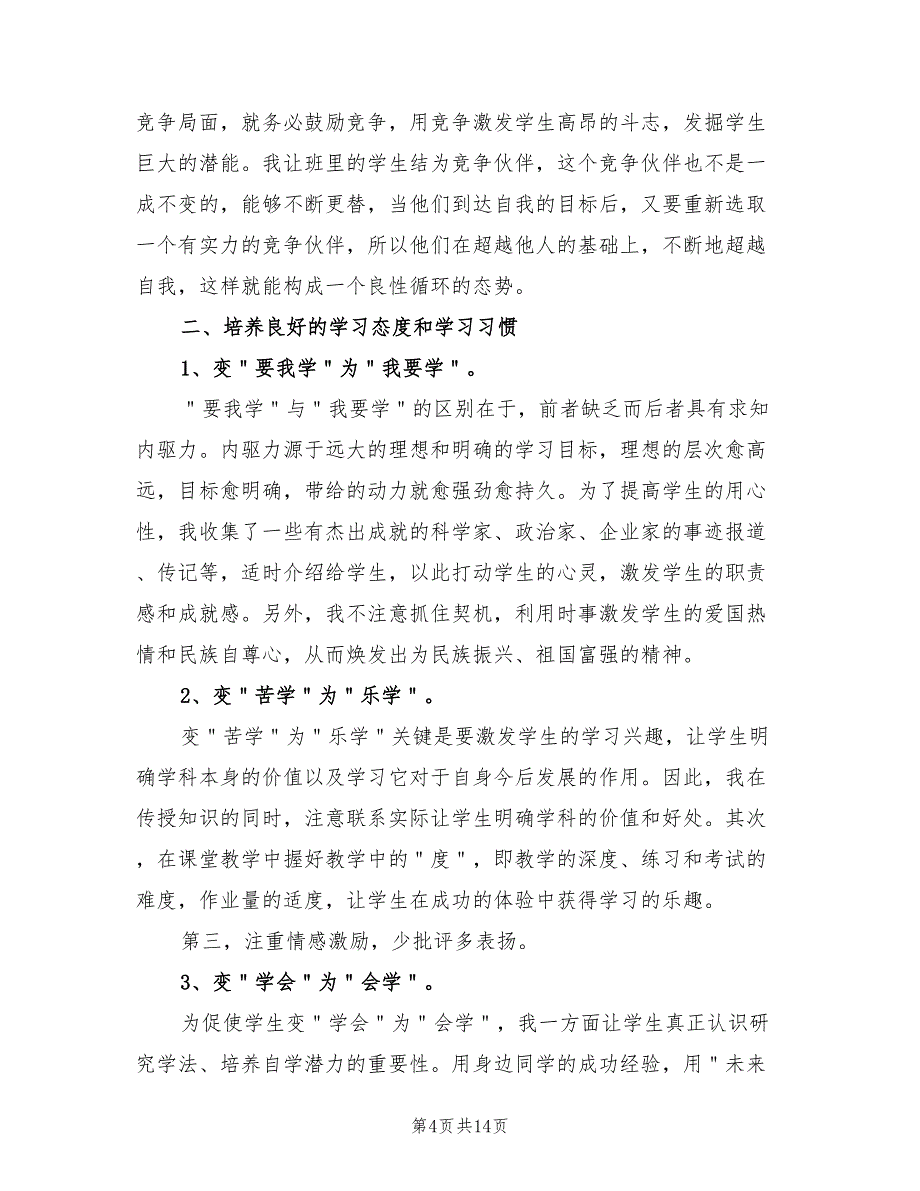 竞争局面，就务必鼓励竞争，用竞争激发学生高昂的斗志，发掘学生
巨大的潜能。我让班里的学生结为竞争伙伴，这个竞争伙伴也不是一
成不变的，能够不断更替，当他们到达自我的目标后，又要重新选取
一个有实力的竞争伙伴，所以他们在超越他人的基础上，不断地超越
自我，这样就能构成一个良性循环的态势。
二、培养良好的学习态度和学习习惯
1、变＂要我学＂为＂我要学＂。
＂要我学＂与＂我要学＂的区别在于，前者缺乏而后者具有求知
内驱力。内驱力源于远大的理想和明确的学习目标，理想的层次愈高
远，目标愈明确，带给的动力就愈强劲愈持久。为了提高学生的用心
性，我收集了一些有杰出成就的科学家、政治家、企业家的事迹报道
、传记等，适时介绍给学生，以此打动学生的心灵，激发学生的职责
感和成就感。另外，我不注意抓住契机，利用时事激发学生的爱国热
情和民族自尊心，从而焕发出为民族振兴、祖国富强的精神。
2、变＂苦学＂为＂乐学＂。
变＂苦学＂为＂乐学＂关键是要激发学生的学习兴趣，让学生明
确学科本身的价值以及学习它对于自身今后发展的作用。因此，我在
传授知识的同时，注意联系实际让学生明确学科的价值和好处。其次
，在课堂教学中握好教学中的＂度＂，即教学的深度、练习和考试的
难度，作业量的适度，让学生在成功的体验中获得学习的乐趣。
第三，注重情感激励，少批评多表扬。
3、变＂学会＂为＂会学＂。
为促使学生变＂学会＂为＂会学＂，我一方面让学生真正认识研
究学法、培养自学潜力的重要性。用身边同学的成功经验，用＂未来
第4页共14页